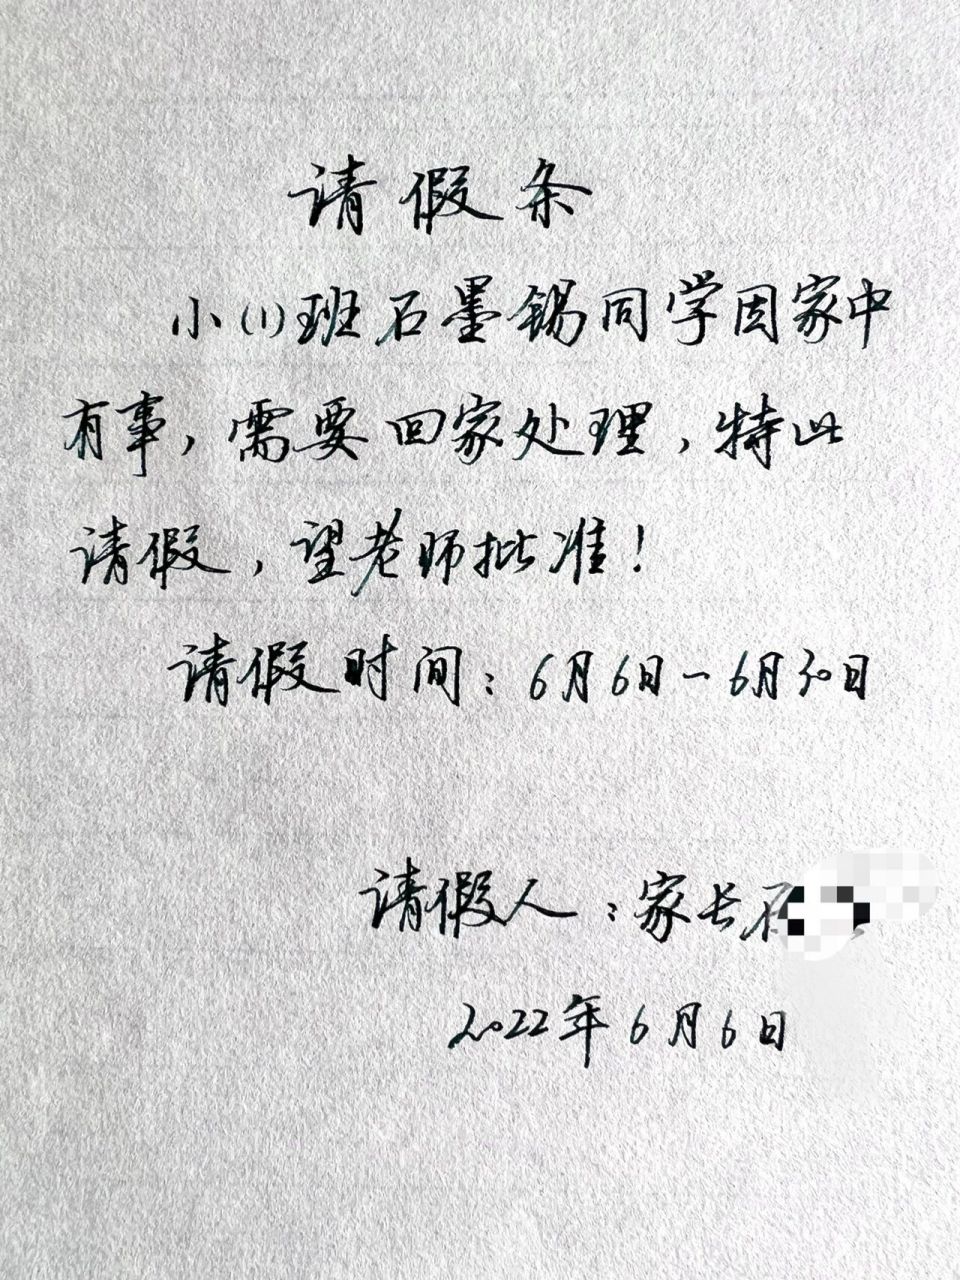 请假条
小(1)班石墨锡同学因家中
有事,需要回家处理,特此
请假,望老师批准!
请假时间:6月6日-6月30日
请假人:家长石
2022年6月6日